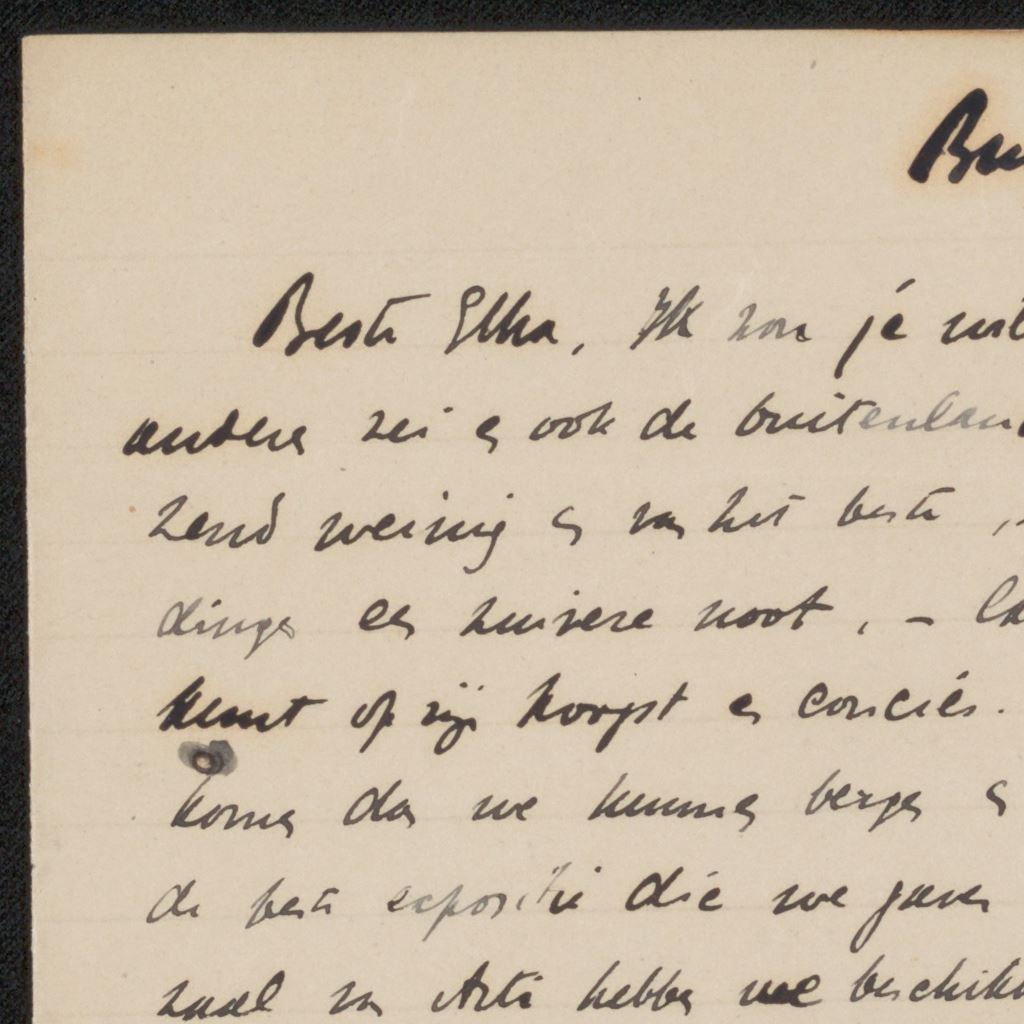 Bu
Beste Elka, Ik zou je wil
andere zei en ook de buitenlan
zend weinig en van het beste, -
dingen een zuivere noot, -
kunst op zijn hoogst en conciës.
komen dan we kunnen bergen en
de beste expositie die we gaven
zaal van Arti hebben we beschikk